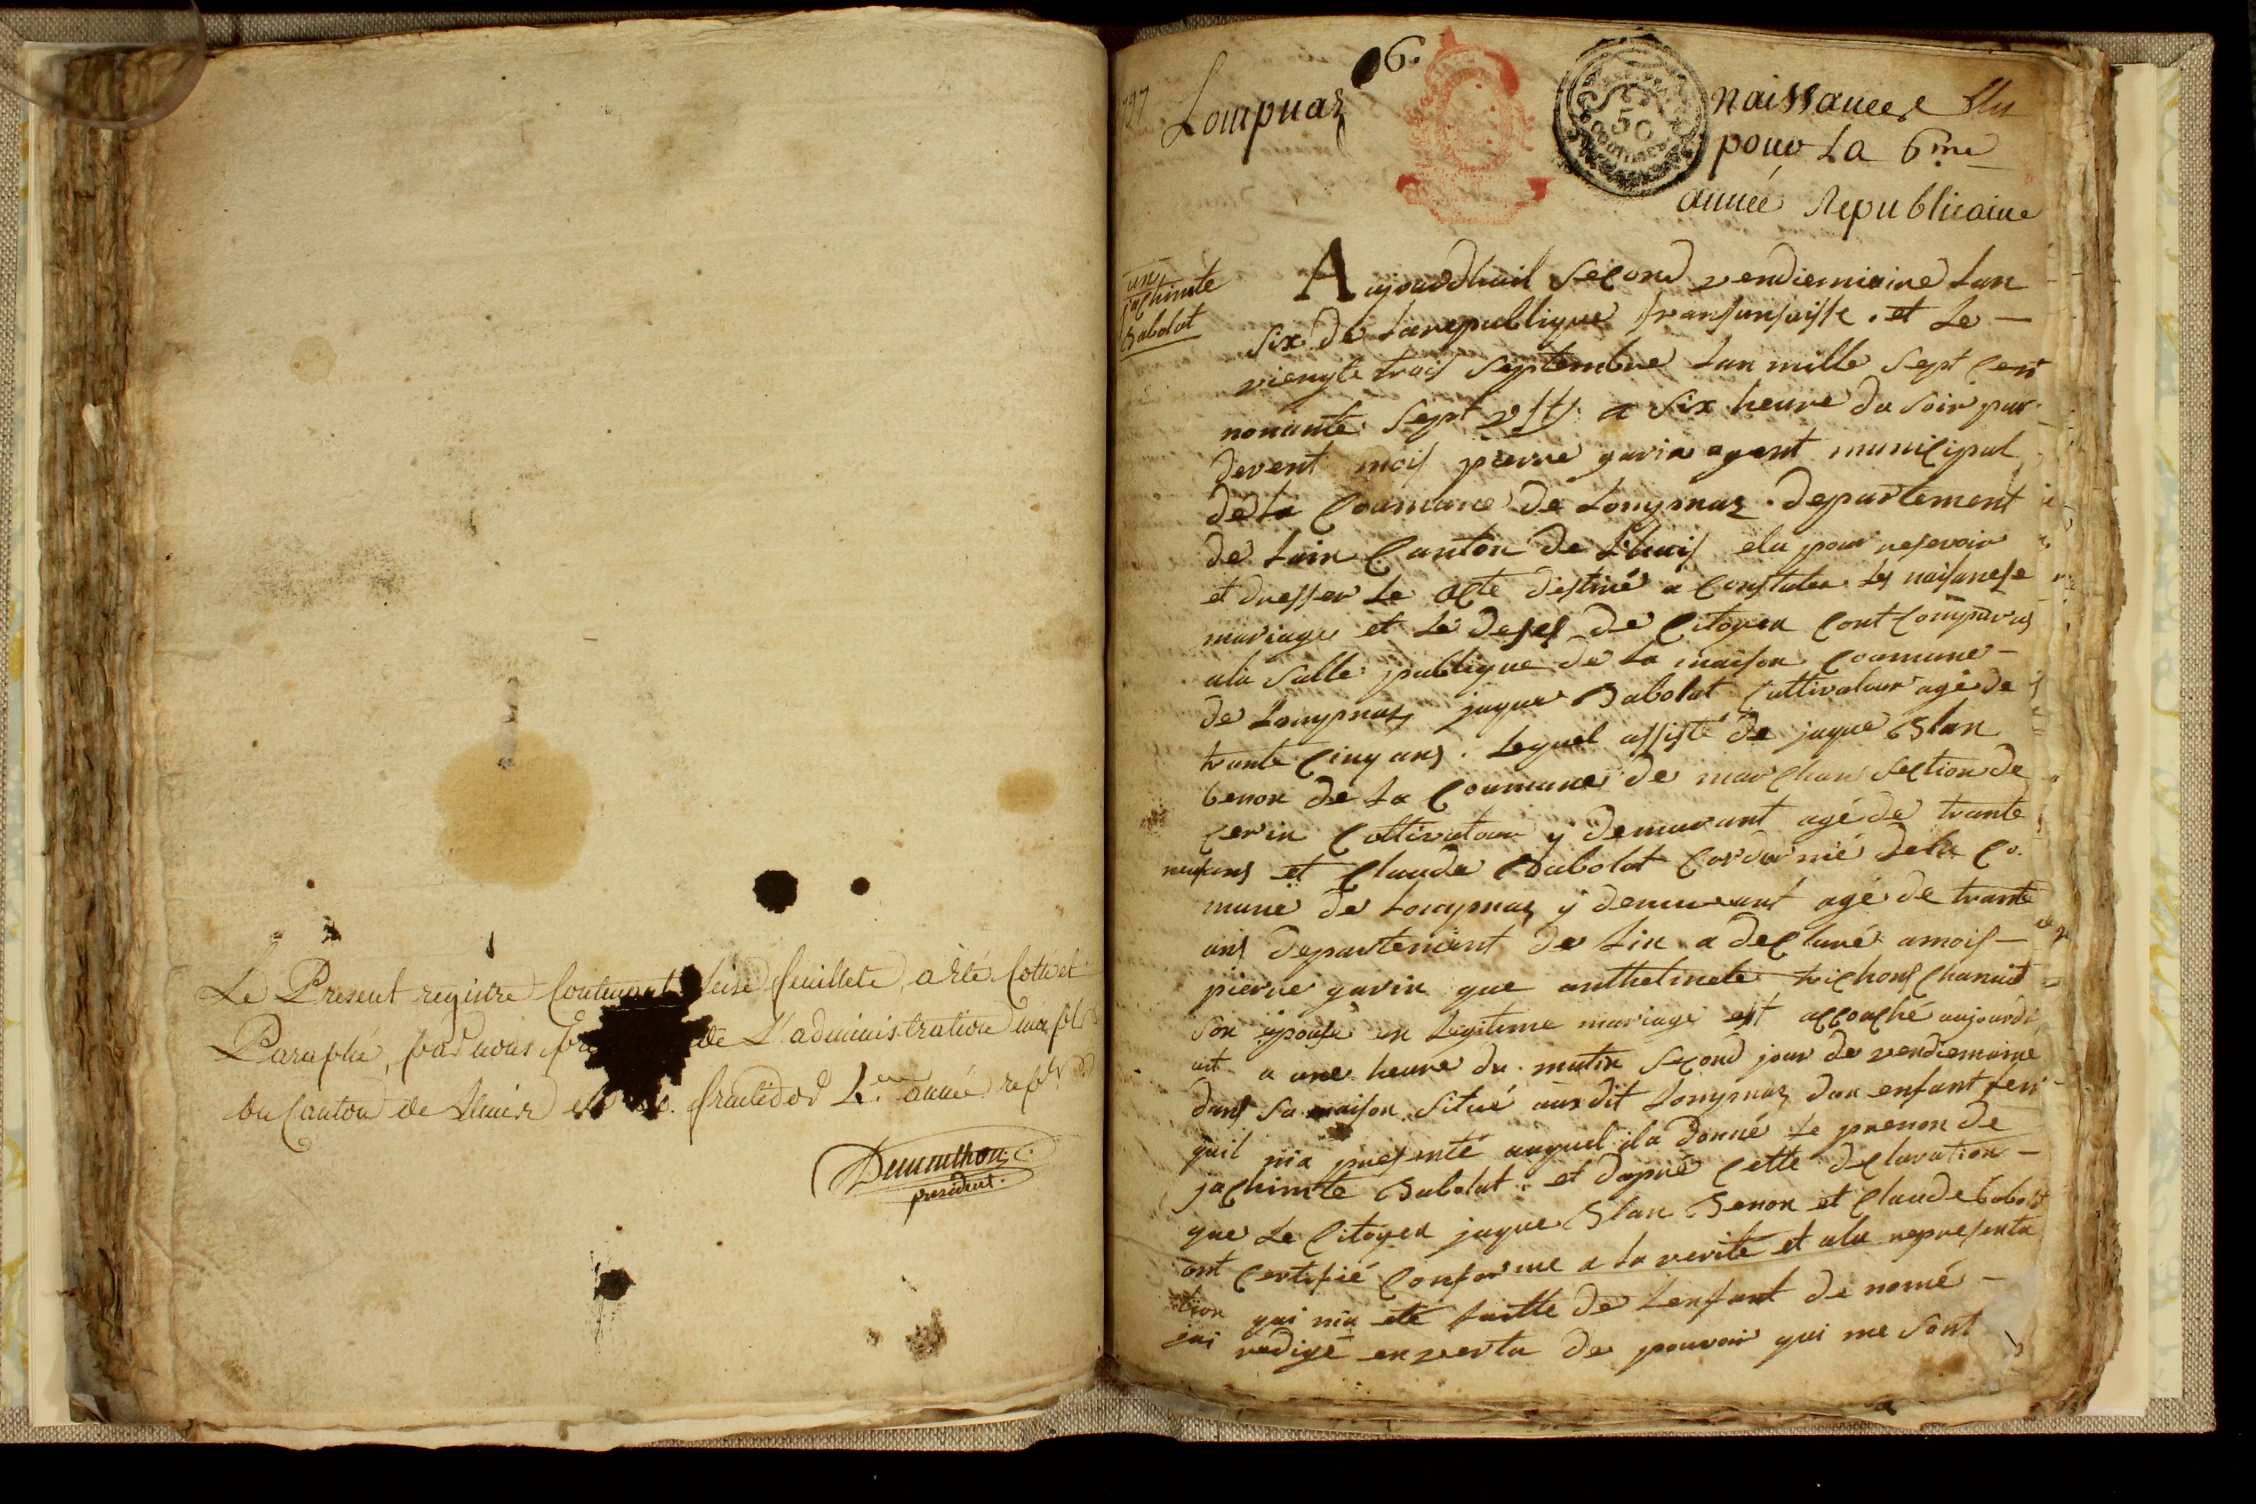 Le Present registre Contenant seise feuillets, a été Cotté et
Paraphé, par nous de L'administration
du Canton de Lhuis fructidor année
Dumarthon
president.
1797 Lompnaz 6.
naissances
pour La 6me
année Republicaine
50
un
jachinte
Babolat
Aujourdhuil second vendiemiaire Lan
six de La republique fransunsaisse. et Le
viengte trois Septembre Lan mille Sept Cent
nonante Sept a six heure du soir par
devent mois pierre gavin agent municipal
de La Coumune de Lompnaz. departement
de Lain Canton de Lhuis elu pour resevoir
et dresser Le acte destiné a Constater Les naisanese
mariage et Le deses de Citoyen Cont Comparus
ala Salle publique de La maison Coumune
de Lompnaz jaque Babolat Cultivatour agé de
trante Cinq ans. Lequel assisté de jaque Blan
benon de La Coumune de marchan section de
Cerin Coltivatour y demeurant agé de trante
neufans et Claude Babolat Cordonié de La Co
mune de Lompnaz y demeurant agé de trante
ans departement de Lin a declaré amois
pierre gavin que anthelmete
son epouse en Legitime mariage est accouché aujourd
uit a une heure du matin second jour de vendiemaire
dans sa maison situé audit Lompnaz dun enfant
quil ma presenté auquel ila donné Le prenon de
jachimte Babolat et dapré Cette declaration
que Le Citoyen jaque Blan Benon et Claude babolat
ont Certifié Conforme a La verité et ala representa
tion qui ma eté faitte de Lenfant de nomé
jai redigé en vertu de pouvoir qui me sont